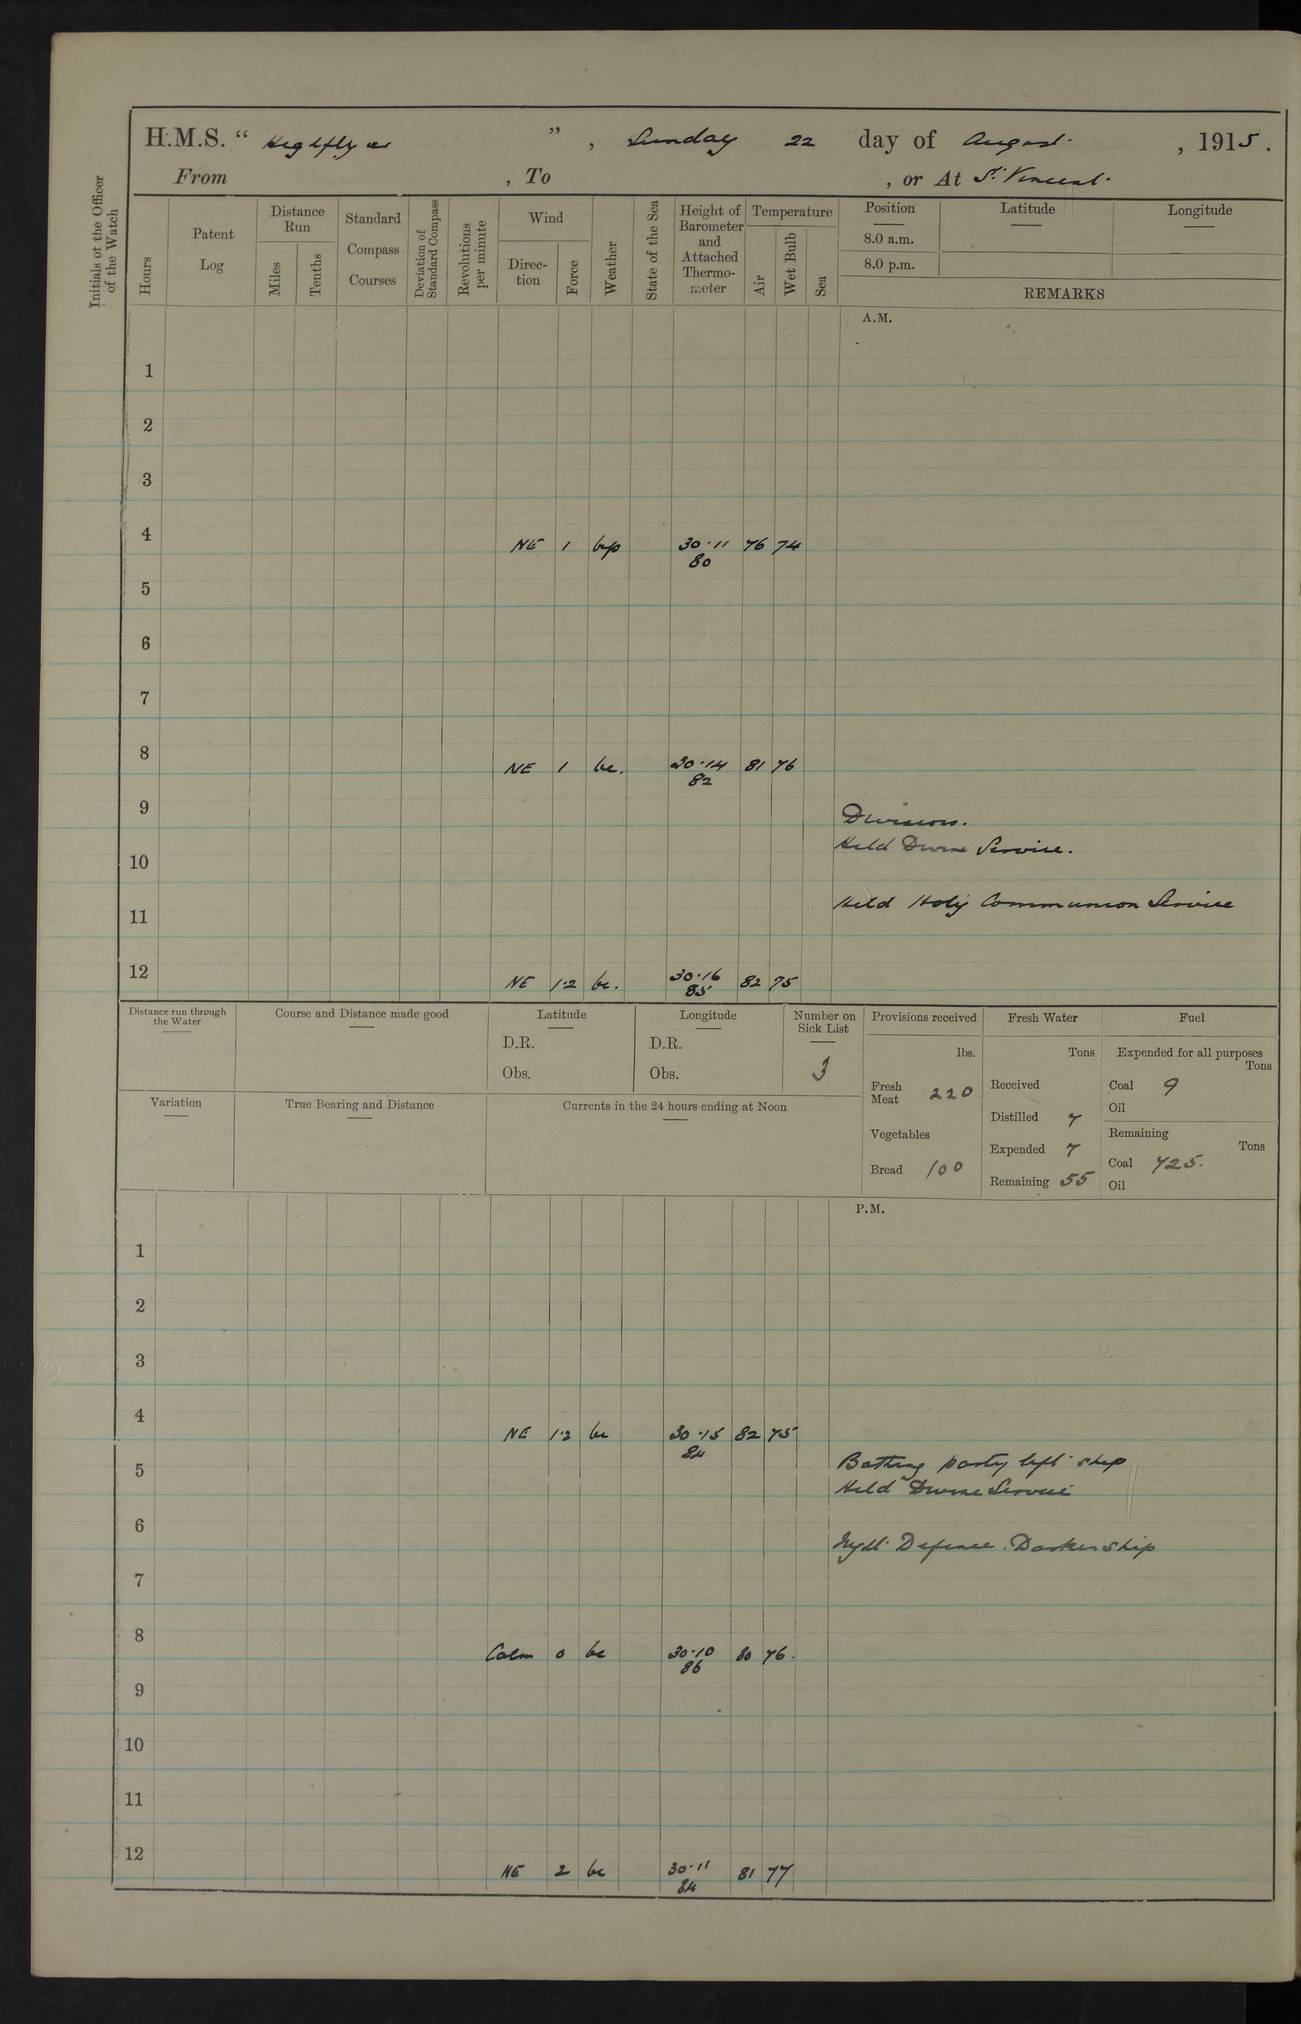 H.M.S. “ Highflyer ” , Sunday 22 day of August , 1915.
From , To , or At St. Vincent.
Initials of the Officer of the Watch
Hours
Patent Log
Distance Run
Miles
Tenths
Standard Compass Courses
Deviation of Standard Compass
Revolutions per minute
Wind
Direction
Force
Weather
State of the Sea
Height of Barometer and Attached Thermometer
Temperature
Air
Wet Bulb
Sea
Position Latitude Longitude
8.0 a.m.
8.0 p.m.
REMARKS
A.M.
1
2
3
4 NE 1 30.11 76 74
80
5
6
7
8 NE 1 bc. 30.14 81 76
82
9
Divisions.
Held Divine Service.
10
Held Holy Communion Service
11
12 NE 1.2 bc. 30.16 82 75
85
Distance run through the Water
Course and Distance made good
Latitude
D.R.
Obs.
Longitude
D.R.
Obs.
Number on Sick List
3
Provisions received
lbs.
Fresh Meat 220
Vegetables
Bread 100
Fresh Water
Tons
Received
Distilled 7
Expended 7
Remaining 55
Fuel
Expended for all purposes
Tons
Coal 9
Oil
Remaining
Tons
Coal 725.
Oil
Variation
True Bearing and Distance
Currents in the 24 hours ending at Noon
P.M.
1
2
3
4 NE 1.2 bc 30.15 82 75
84
Bathing party left ship
5
Held Divine Service
6
Night Defence. Darken ship
7
8 Calm 0 bc 30.10 80 76.
86
9
10
11
12 NE 2 bc 30.11 81 77
84